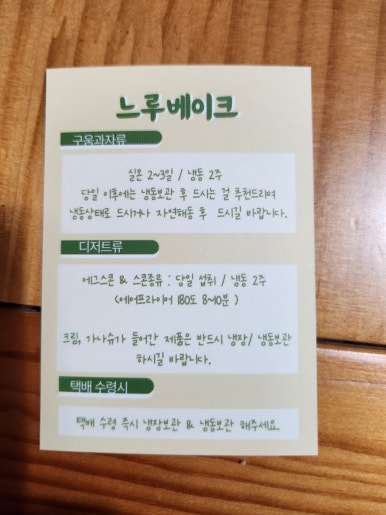 느루베이크
구움과자류
실온 2~3일 / 냉동 2주
당일 이후에는 냉동보관 후 드시는 걸 추천드리며
냉동상태로 드시거나 자연해동 후 드시길 바랍니다.
디저트류
에그스콘 & 스콘종류 : 당일 섭취 / 냉동 2주
(에어프라이어 180도 8~10분)
크림, 가나슈가 들어간 제품은 반드시 냉장/ 냉동보관
하시길 바랍니다.
택배 수령시
택배 수령 즉시 냉장보관 & 냉동보관 해주세요.